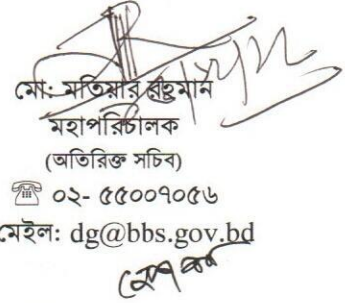 মো: মতিয়ার রহমান
মহাপরিচালক
(অতিরিক্ত সচিব)
০২- ৫৫০০৭০৫৬
মেইল: dg@bbs.gov.bd